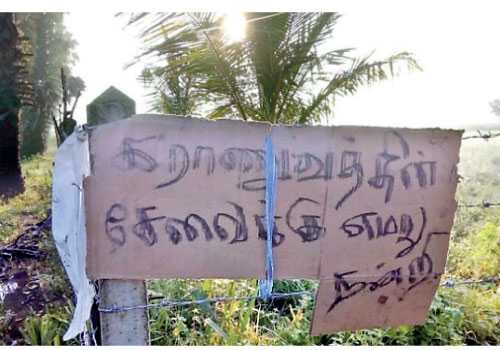 இராணுவத்தின்
சேவைக்கு எமது
நன்றி